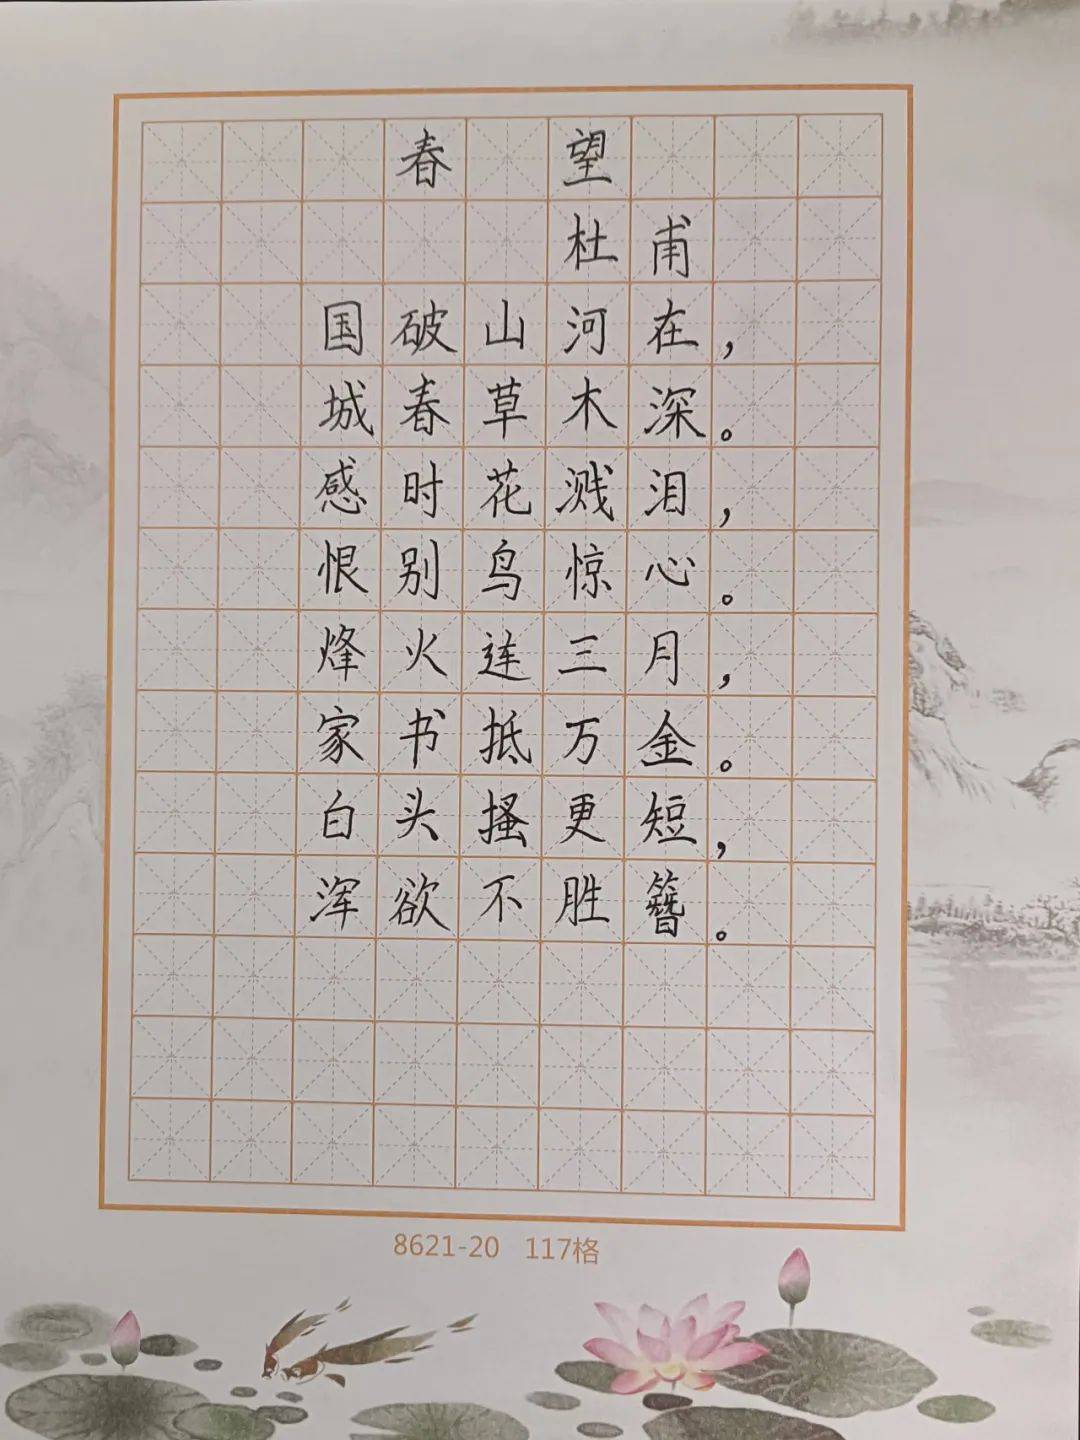 春 望
杜甫
国破山河在，
城春草木深。
感时花溅泪，
恨别鸟惊心。
烽火连三月，
家书抵万金。
白头搔更短，
浑欲不胜簪。
8621-20 117格